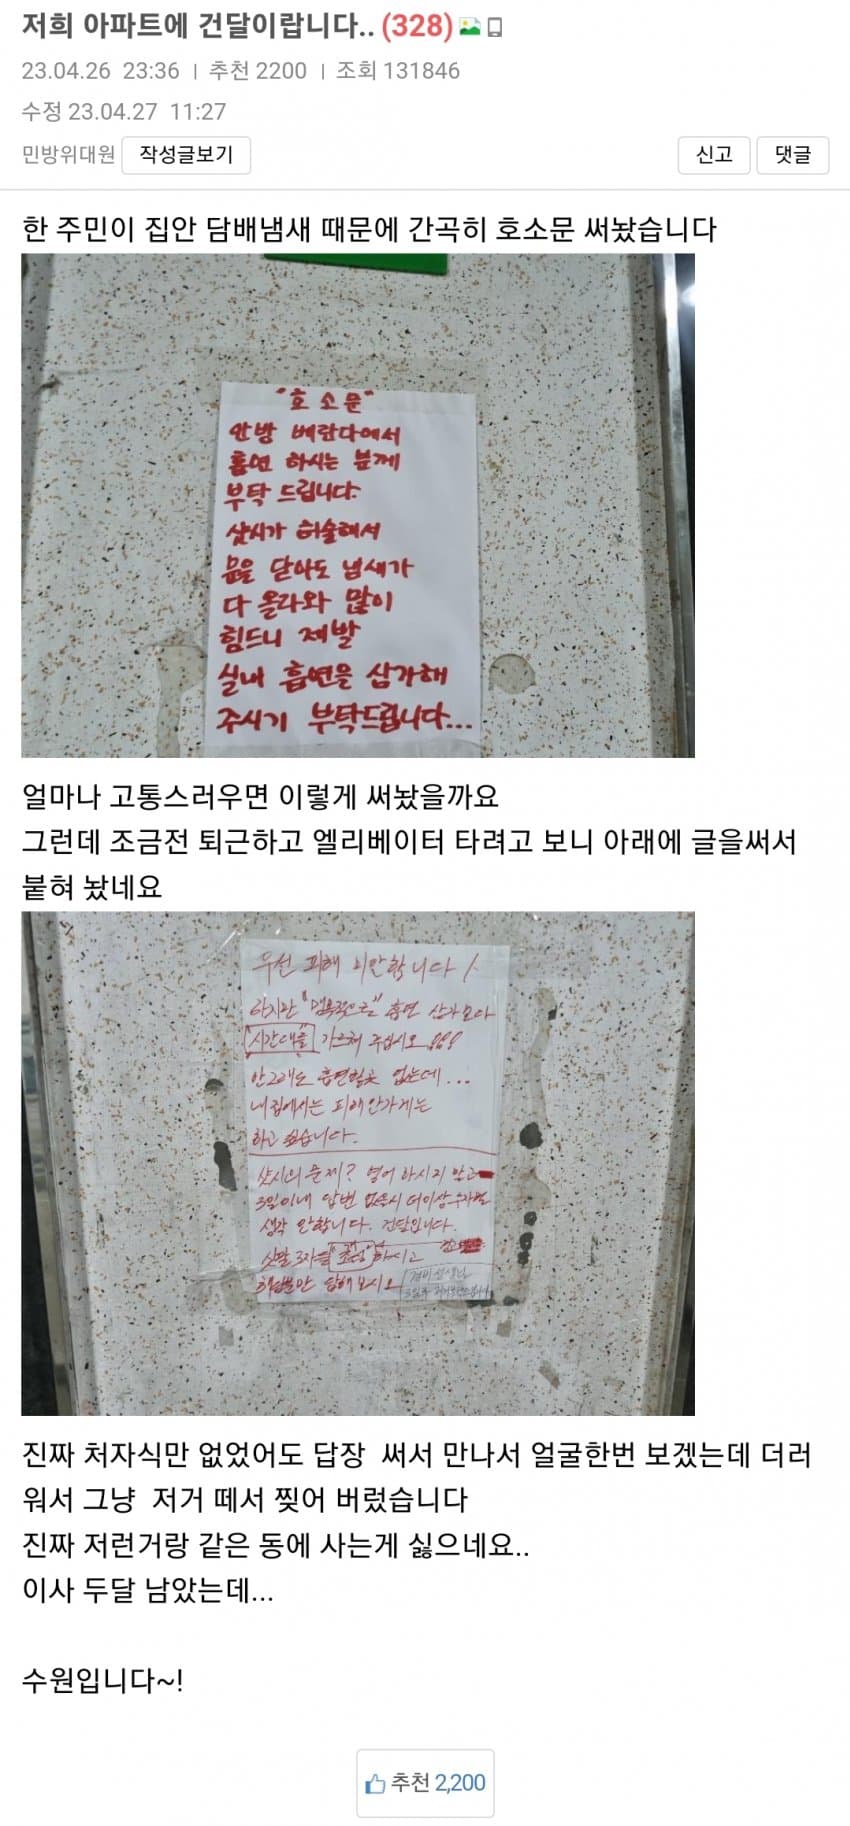 저희 아파트에 건달이랍니다.. (328)
23.04.26 23:36 | 추천 2200 | 조회 131846
수정 23.04.27 11:27
민방위대원 작성글보기 신고 댓글
한 주민이 집안 담배냄새 때문에 간곡히 호소문 써놨습니다
"호소문"
안방 베란다에서
흡연 하시는 분께
부탁 드립니다.
샷시가 허술해서
문을 닫아도 냄새가
다 올라와 많이
힘드니 제발
실내 흡연을 삼가해
주시기 부탁드립니다...
얼마나 고통스러우면 이렇게 써놨을까요
그런데 조금전 퇴근하고 엘리베이터 타려고 보니 아래에 글을써서
붙혀 놨네요
우선 피해 미안합니다!
하지만 "맹목적으로" 흡연 삼가보다
시간대를 가르쳐 주십시오!!!
안그래도 흡연할곳 없는데...
내집에서는 피해안가게는
하고 싶습니다.
샷시의 문제? 영어 하시지 말고
3일이내 답변 없을시 더이상
생각 안합니다. 건달입니다.
하시고
답해보시오
경비선생님
진짜 처자식만 없었어도 답장 써서 만나서 얼굴한번 보겠는데 더러
워서 그냥 저거 떼서 찢어 버렸습니다
진짜 저런거랑 같은 동에 사는게 싫으네요..
이사 두달 남았는데...
수원입니다~!
추천 2,200